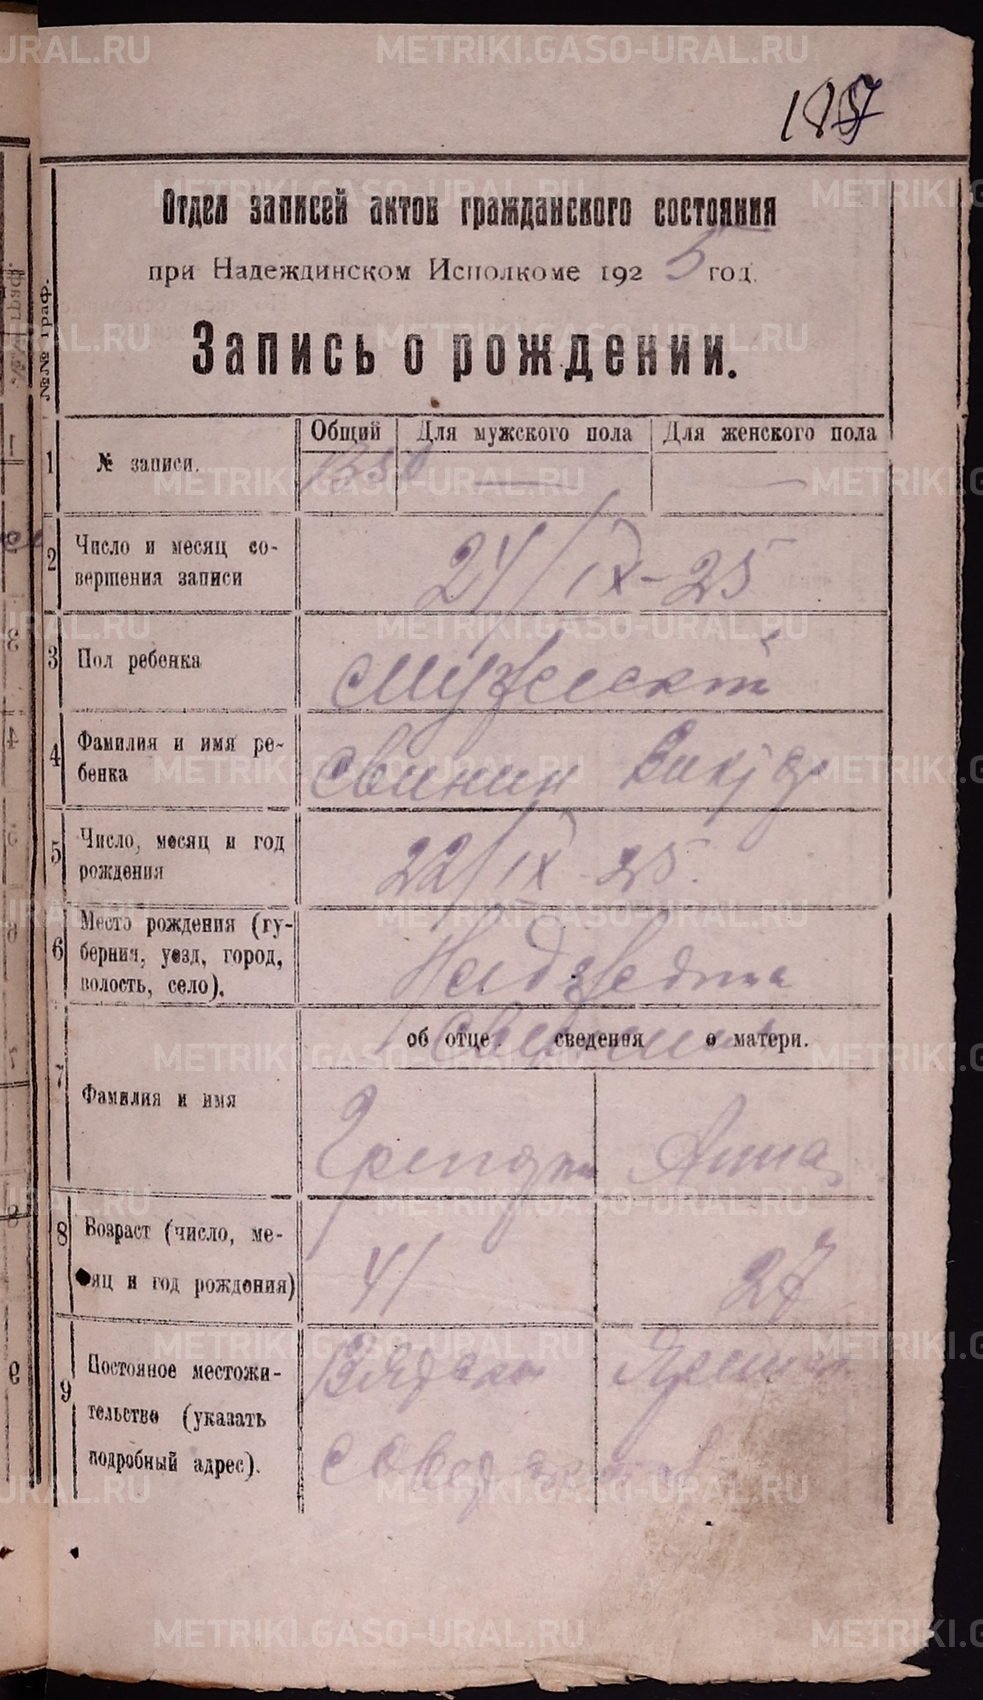 187
Отдел записей актов гражданского состояния
при Надеждинском Исполкоме 192 5 год.
Запись о рождении.
№№ граф.
Общий Для мужского пола Для женского пола
1 № записи. 1350 — —
2 Число и месяц со-
вершения записи
24/IX-25
3 Пол ребенка мужеский
4 Фамилия и имя ре-
бенка
Свинин Виктор
5 Число, месяц и год
рождения
22/IX-25.
6 Место рождения (гу-
берния, уезд, город,
волость, село).
Надеждинка
об отце. сведения о матери.
Свинины
7 Фамилия и имя
Григорий Анна
8 Возраст (число, ме-
сяц и год рождения)
41 27
9 Постояное местожи-
тельство (указать
подробный адрес).
METRIKI.GASO-URAL.RU